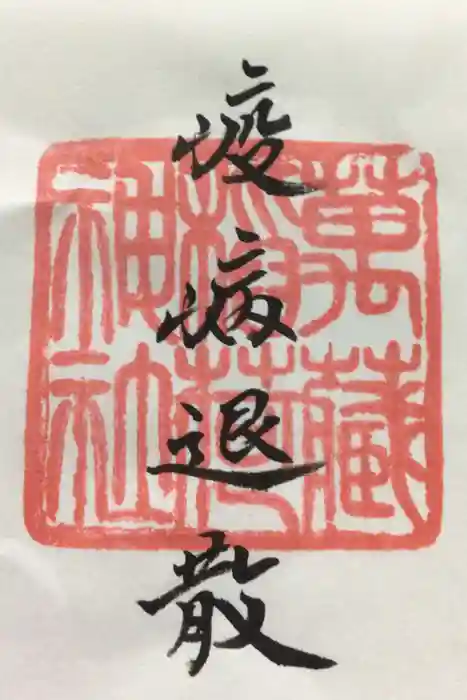 疫病退散
萬藏
稲荷
神社